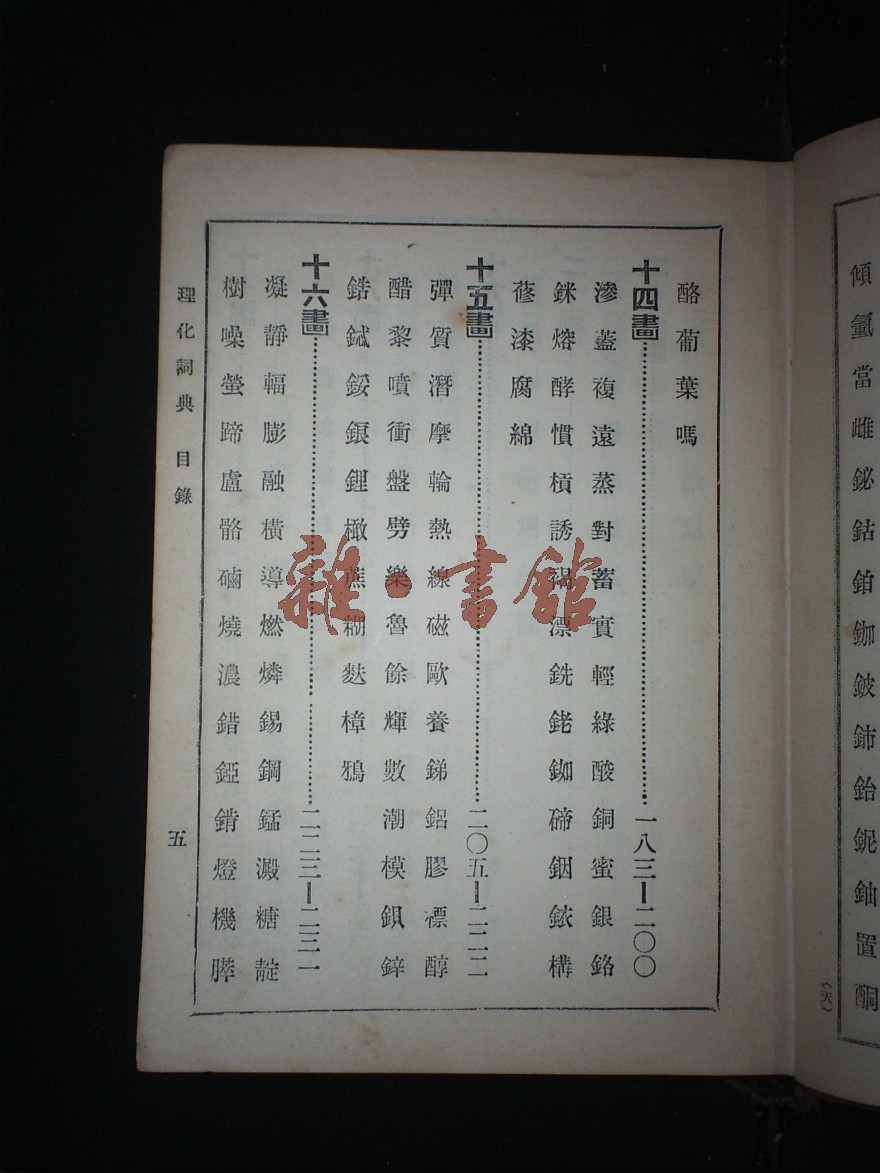 傾氫當雌鉍鈷鉑鉫鈹鈰鉛鈮鈾置酮
(天)
酪葡葉嗎
十四畫……一八三—二〇〇
滲蓋複遠蒸對蓄實輕綠酸銅蜜銀鉻
銤熔酵慣槓誘褐漂銑銠銣碲銦銥構
蓚漆腐綿
十五畫……二〇五—二二二
彈質潛摩輪熱線磁歐養銻鋁膠標醇
醋黎噴衝盤劈樂魯餘輝數潮模鋇鋅
鋯鋱鋖鋃鋰橄蔗糊麩樟鴉
十六畫……二二三—二三一
凝靜輻膨融橫導燃燐錫鋼錳澱糖靛
樹噪螢蹄盧骼硇燒濃錯錏錆燈機膵
理化詞典 目錄
五
雜·書館